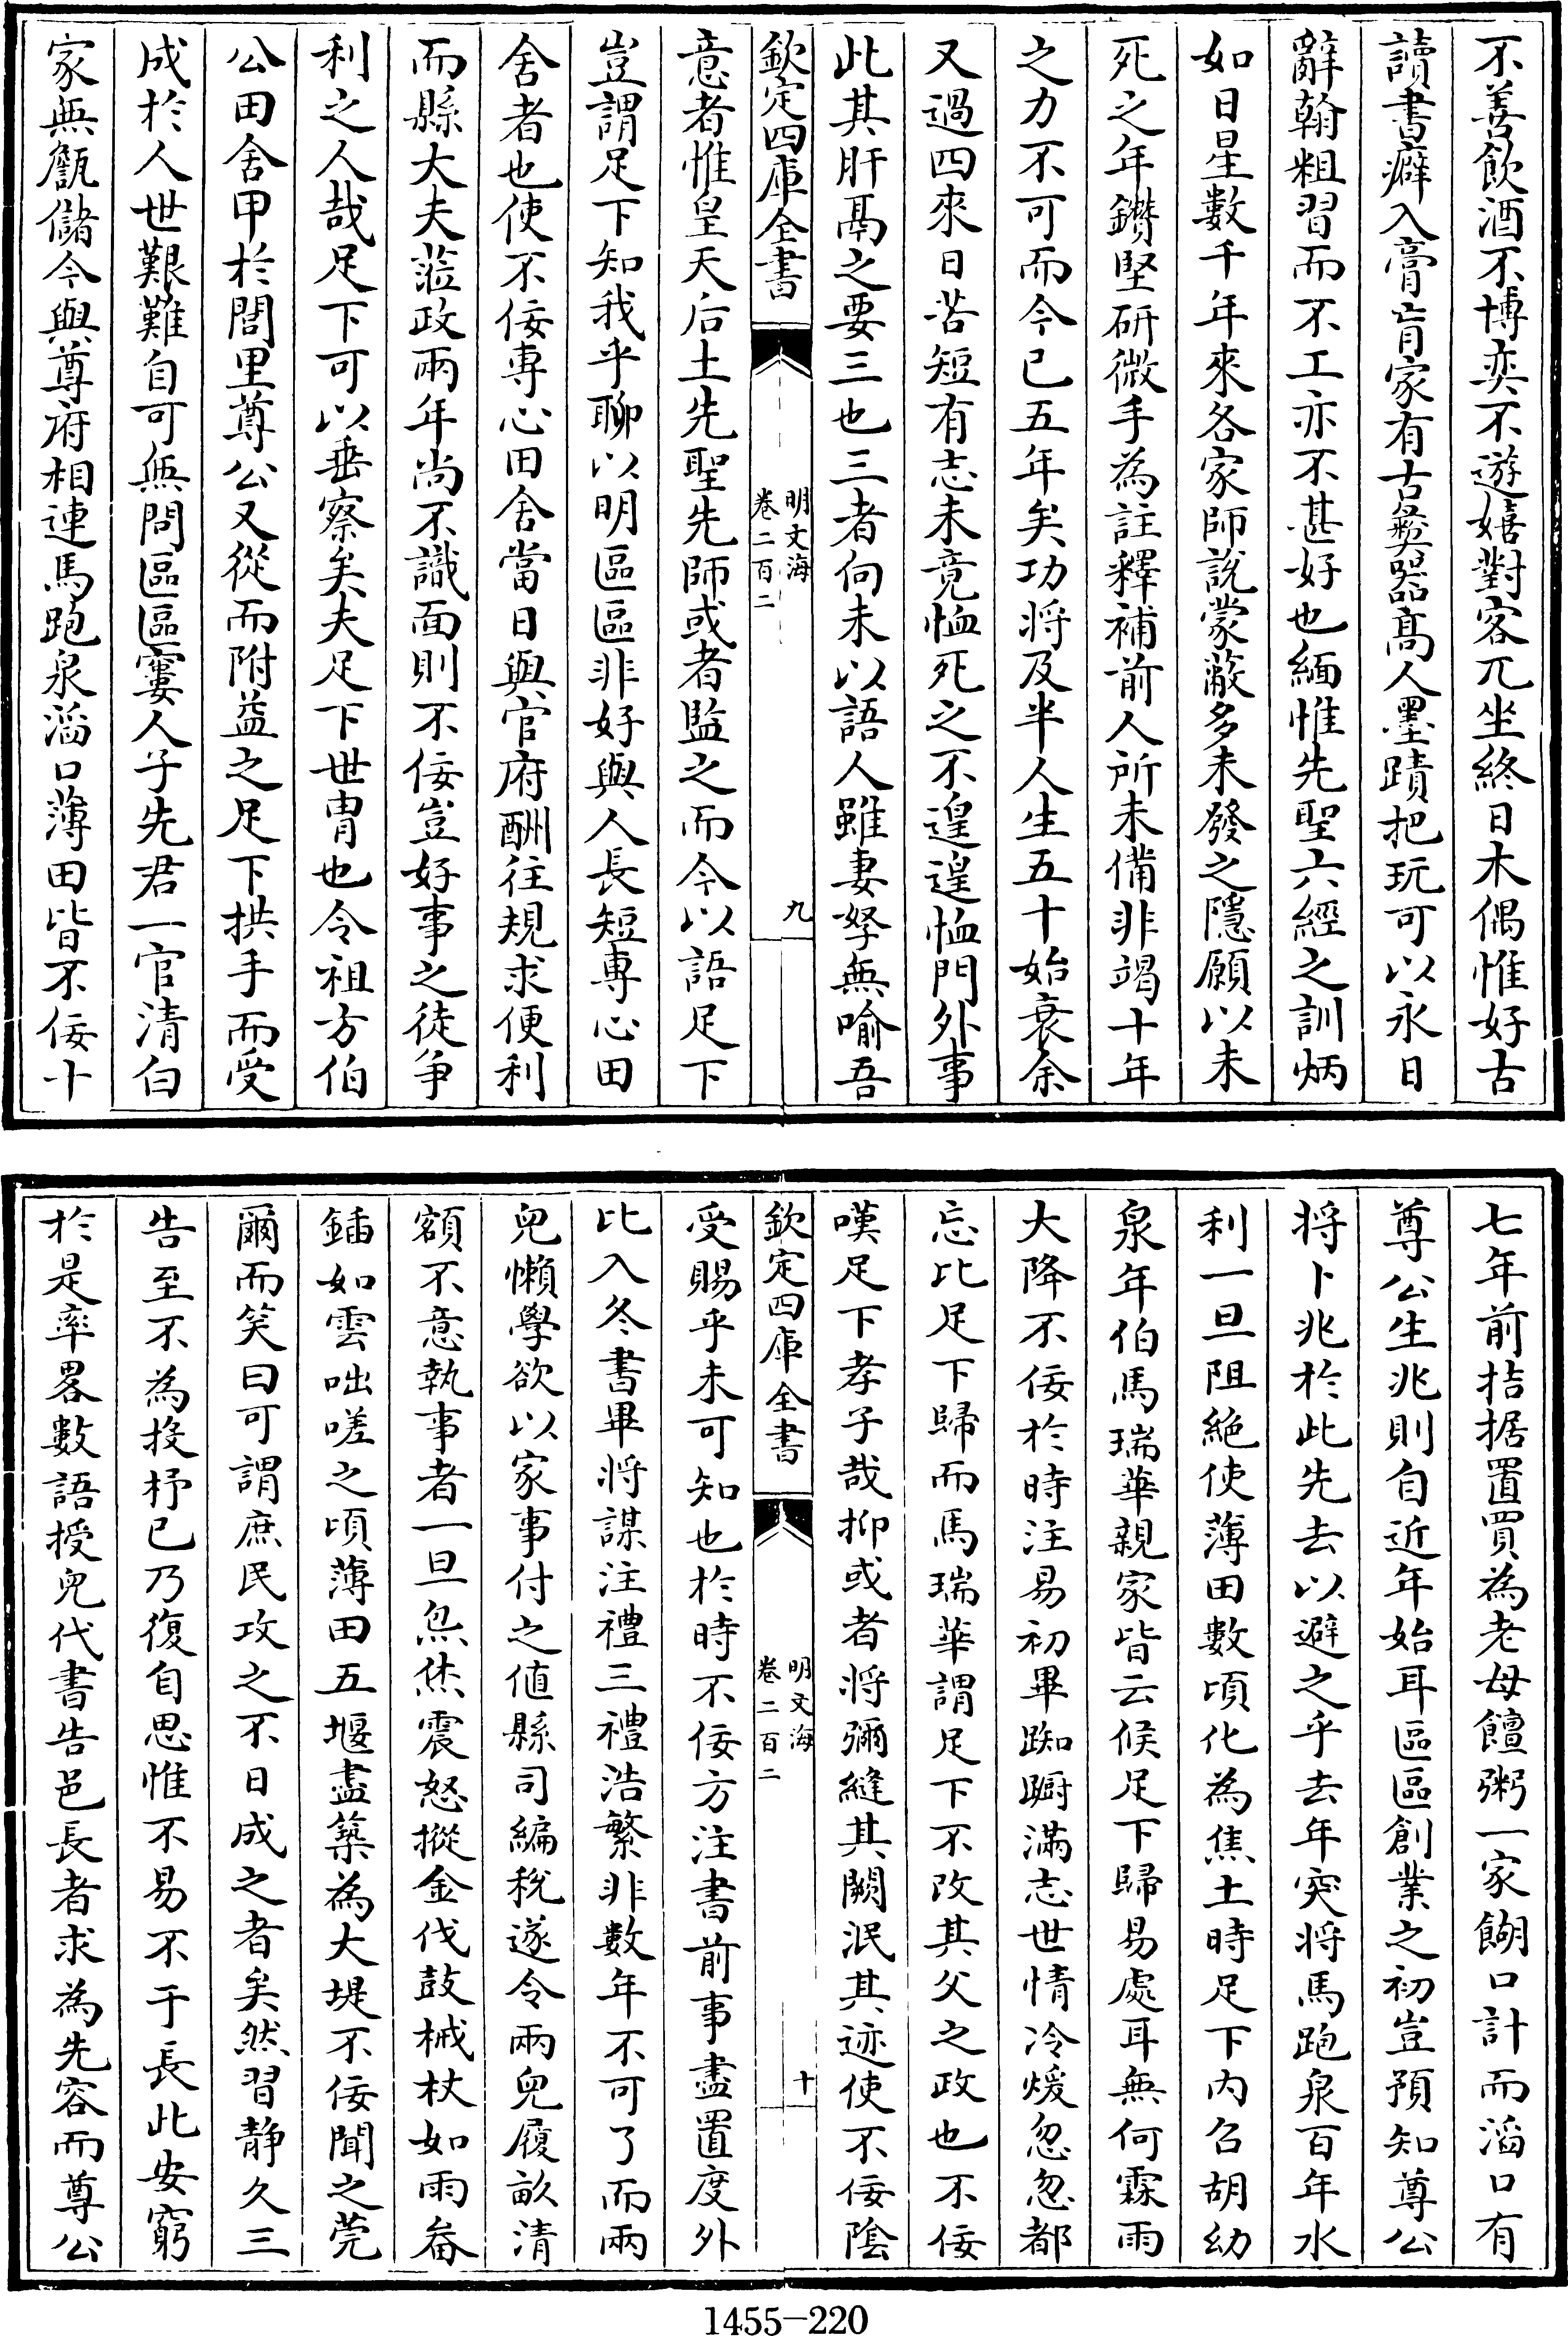 不善飲酒不博奕不遊嬉對客兀坐終日木偶惟好古
讀書癖入膏肓家有古彝器髙人墨蹟把玩可以永日
辭翰粗習而不工亦不甚好也緬惟先聖六經之訓炳
如日星數千年來各家師說蒙蔽多未發之隱願以未
死之年鑽堅研微手為註釋補前人所未備非竭十年
之力不可而今已五年矣功将及半人生五十始衰余
又過四來日苦短有志未竟恤死之不遑遑恤門外事
此其肝鬲之要三也三者向未以語人雖妻孥無喻吾
欽定四庫全書
明文海
卷二百二
九
意者惟皇天后土先聖先師或者監之而今以語足下
豈謂足下知我乎聊以明區區非好與人長短專心田
舍者也使不佞專心田舍當日與官府酬往規求便利
而縣大夫蒞政兩年尚不識面則不佞豈好事之徒争
利之人哉足下可以垂察矣夫足下世胄也令祖方伯
公田舍甲於閭里尊公又從而附益之足下拱手而受
成於人世艱難自可無問區區窶人子先君一官清白
家無甔儲今與尊府相連馬跑泉滔口薄田皆不佞十
七年前拮据置買為老母饘粥一家餬口計而滔口有
尊公生兆則自近年始耳區區創業之初豈預知尊公
将卜兆於此先去以避之乎去年突将馬跑泉百年水
利一旦阻絶使薄田數頃化為焦土時足下内召胡幼
泉年伯馬瑞華親家皆云候足下歸易處耳無何霖雨
大降不佞於時注易初畢踟躕滿志世情冷煖忽忽都
忘比足下歸而馬瑞華謂足下不改其父之政也不佞
嘆足下孝子哉抑或者将彌縫其闕泯其迹使不佞陰
欽定四庫全書
明文海
卷二百二
十
受賜乎未可知也於時不佞方注書前事盡置度外
比入冬書畢将謀注禮三禮浩繁非數年不可了而兩
兒懶學欲以家事付之值縣司編稅遂令兩兒履畝清
額不意執事者一旦炰烋震怒摐金伐鼓械杖如雨畚
鍤如雲咄嗟之頃薄田五堰盡築為大堤不佞聞之莞
爾而笑曰可謂庶民攻之不日成之者矣然習静久三
告至不為投杼已乃復自思惟不易不于長此安窮
於是率畧數語授兒代書告邑長者求為先容而尊公
1455-220